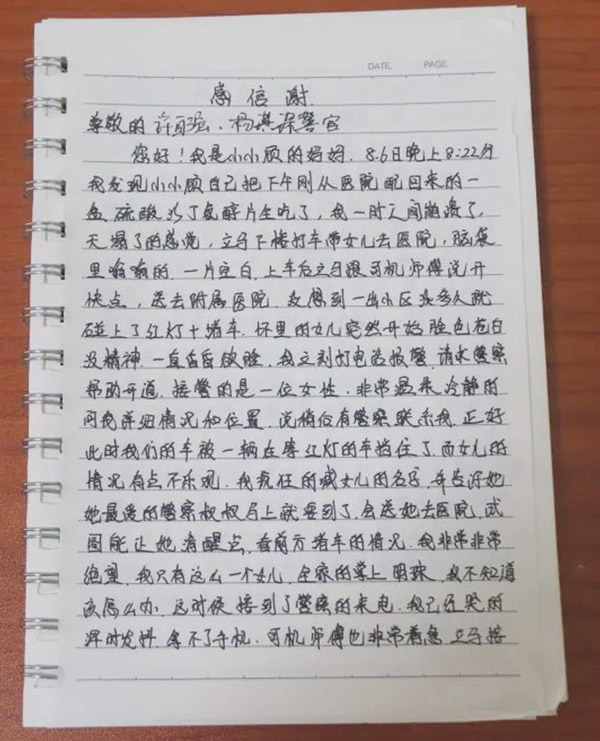 DATE PAGE
感信谢.
尊敬的许可强、杨淇深警官
您好！我是小小顾的妈妈. 8.6日晚上8:22分
我发现小小顾自己把下午刚从医院配回来的一
盒硫酸沙丁氨醇片全吃了，我一时之间崩溃了，
天塌了的感觉，立马下楼打车带女儿去医院，脑袋
里嗡嗡的一片空白，上车后立马跟司机师傅说开
快点，送去附属医院. 没想到一出小区没多久就
碰上了红灯+堵车. 怀里的女儿突然开始脸色苍白
没精神. 一直昏昏欲睡. 我立刻打电话报警，请求警察
帮助开道. 接警的是一位女性. 非常温柔冷静的
问我详细情况和位置. 说稍后有警察联系我. 正好
此时我们的车被一辆在等红灯的车挡住了，而女儿的
情况有点不乐观. 我疯狂的喊女儿的名字，并告诉她
她最爱的警察叔叔马上就要到了，会送她去医院，试
图能让她清醒点，看前方堵车的情况. 我非常非常
绝望. 我只有这么一个女儿，全家的掌上明珠. 我不知道
该怎么办. 这时候接到了警察的来电. 我已经哭的
浑身发抖，拿不了手机. 司机师傅也非常着急，立马接